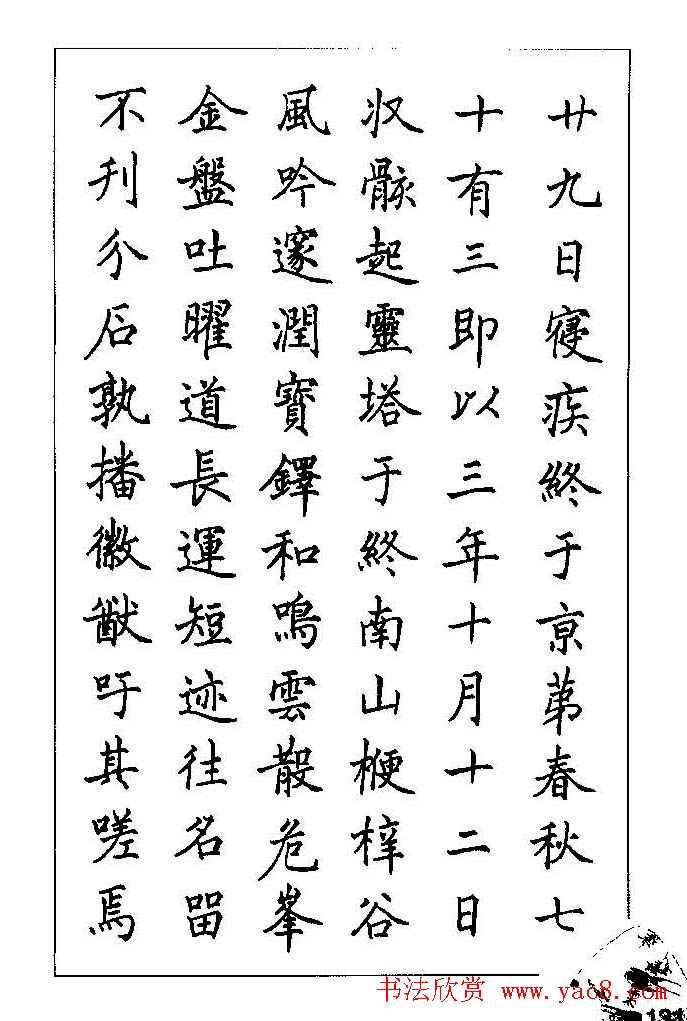 廿九日寑疾終于京苐春秋七
十有三即以三年十月十二日
収骸起靈塔于終南山楩梓谷
風吟邃澗寶鐸和鳴雲散危峯
金盤吐曜道長運短迹往名留
不刋介石孰播徽猷吁其嗟焉
书法欣赏 www.yac8.com